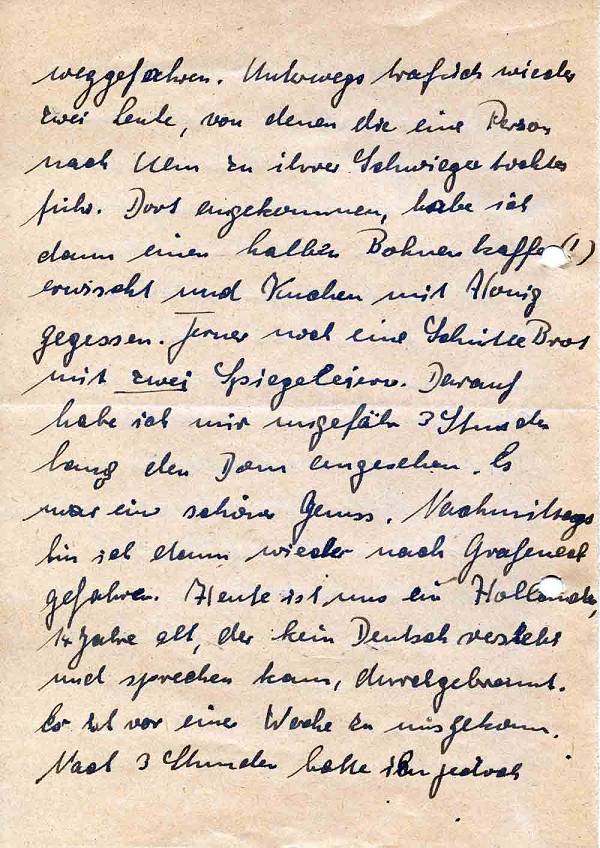 weggefahren. Unterwegs traf ich wieder
zwei Leute, von denen die eine Person
nach Ulm zu ihrer Schwiegertochter
fuhr. Dort angekommen, habe ich
dann einen halben Bohnenkaffe (!)
erwischt und Kuchen mit Honig
gegessen. Ferner noch eine Schnitte Brot
mit zwei Spiegeleiern. Darauf
habe ich mir ungefähr 3 Stunden
lang den Dom angesehen. Es
war ein schöner Genuss. Nachmittags
bin ich dann wieder nach Grafeneck
gefahren. Heute ist uns ein Holländer,
14 Jahre alt, der kein Deutsch versteht
und sprechen kann, durchgebrannt.
Er ist vor einer Woche zu uns gekomm.
Nach 3 Stunden hatte ihn jedoch